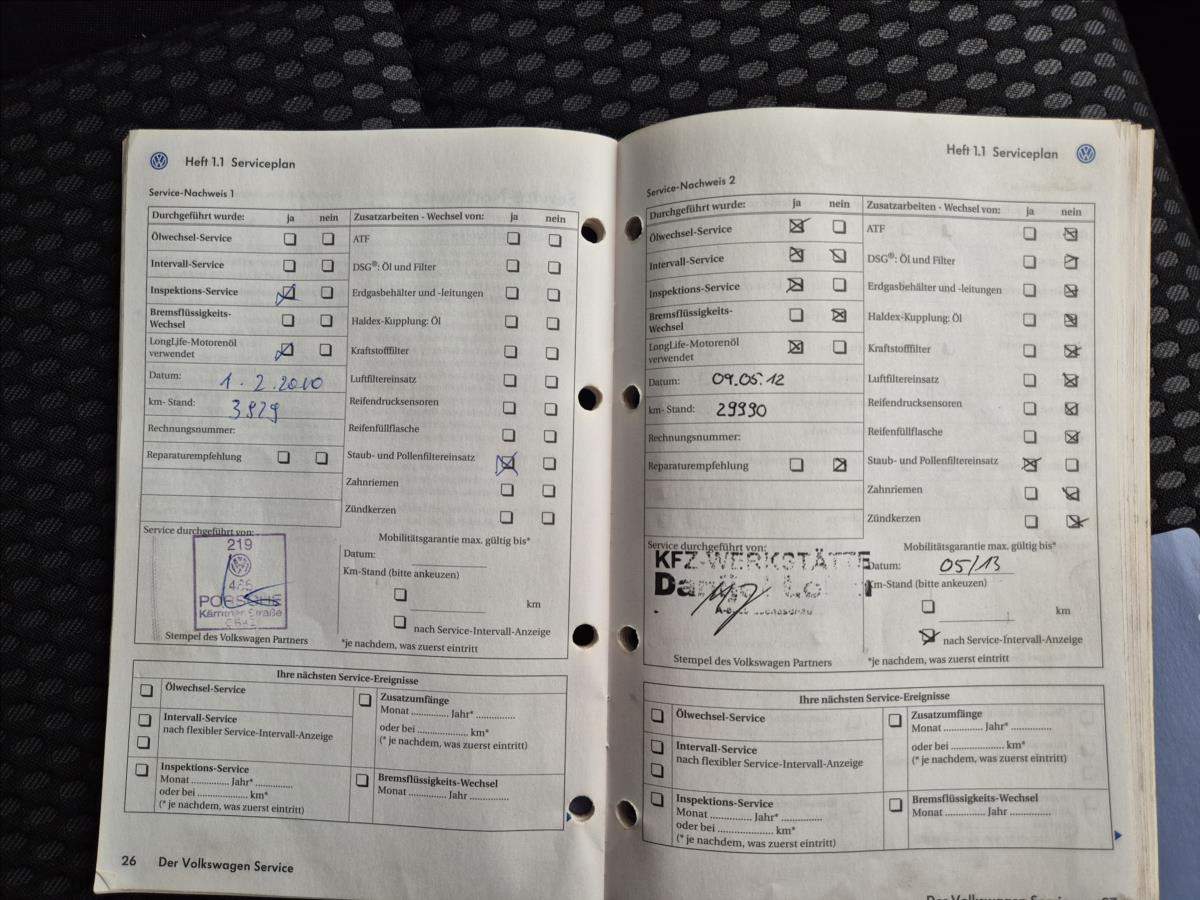 Heft 1.1 Serviceplan
Service-Nachweis 1
Durchgeführt wurde: ja nein Zusatzarbeiten - Wechsel von: ja nein
Ölwechsel-Service ATF
Intervall-Service DSG®: Öl und Filter
Inspektions-Service Erdgasbehälter und -leitungen
Bremsflüssigkeits-
Wechsel Haldex-Kupplung: Öl
LongLife-Motorenöl
verwendet Kraftstofffilter
Datum: 1.2.2010 Luftfiltereinsatz
km- Stand: 3929 Reifendrucksensoren
Rechnungsnummer: Reifenfüllflasche
Reparaturempfehlung Staub- und Pollenfiltereinsatz
Zahnriemen
Zündkerzen
Service durchgeführt von: Mobilitätsgarantie max. gültig bis*
219
PORSCHE
Kärntner Straße
Datum:
Km-Stand (bitte ankeuzen)
km
nach Service-Intervall-Anzeige
Stempel des Volkswagen Partners *je nachdem, was zuerst eintritt
Ihre nächsten Service-Ereignisse
Ölwechsel-Service Zusatzumfänge
Monat ............. Jahr* ..............
Intervall-Service oder bei .................. km*
nach flexibler Service-Intervall-Anzeige (* je nachdem, was zuerst eintritt)
Inspektions-Service Bremsflüssigkeits-Wechsel
Monat ............. Jahr* .............. Monat ............. Jahr ..............
oder bei .................. km*
(* je nachdem, was zuerst eintritt)
26 Der Volkswagen Service
Heft 1.1 Serviceplan
Service-Nachweis 2
Durchgeführt wurde: ja nein Zusatzarbeiten - Wechsel von: ja nein
Ölwechsel-Service ATF
Intervall-Service DSG®: Öl und Filter
Inspektions-Service Erdgasbehälter und -leitungen
Bremsflüssigkeits-
Wechsel Haldex-Kupplung: Öl
LongLife-Motorenöl
verwendet Kraftstofffilter
Datum: 09.05.12 Luftfiltereinsatz
km- Stand: 29990 Reifendrucksensoren
Rechnungsnummer: Reifenfüllflasche
Reparaturempfehlung Staub- und Pollenfiltereinsatz
Zahnriemen
Zündkerzen
Service durchgeführt von: Mobilitätsgarantie max. gültig bis*
KFZ-WERKSTÄTTE
Datum: 05/13
Km-Stand (bitte ankeuzen)
km
nach Service-Intervall-Anzeige
Stempel des Volkswagen Partners *je nachdem, was zuerst eintritt
Ihre nächsten Service-Ereignisse
Ölwechsel-Service Zusatzumfänge
Monat ............. Jahr* ..............
Intervall-Service oder bei .................. km*
nach flexibler Service-Intervall-Anzeige (* je nachdem, was zuerst eintritt)
Inspektions-Service Bremsflüssigkeits-Wechsel
Monat ............. Jahr* .............. Monat ............. Jahr ..............
oder bei .................. km*
(* je nachdem, was zuerst eintritt)